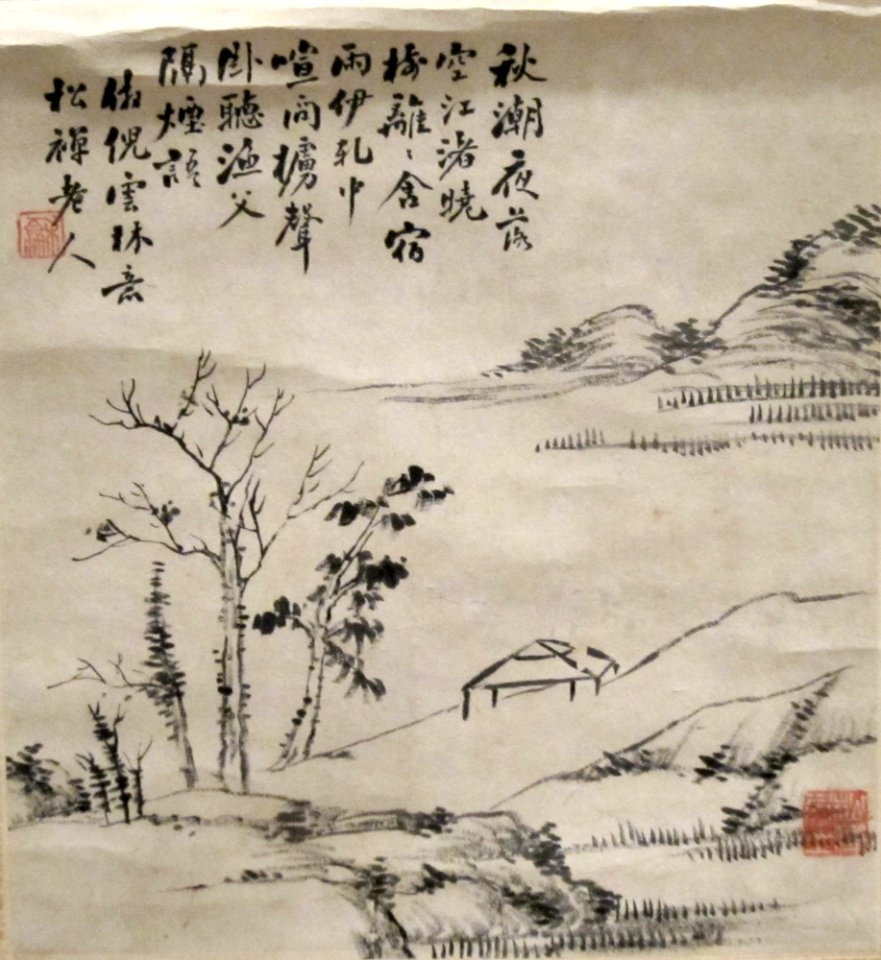 秋潮夜落
空江渚曉
樹離〻含宿
雨伊軋中
喧聞櫓聲
卧聽漁父
隔煙語
倣倪雲林意
松禪老人